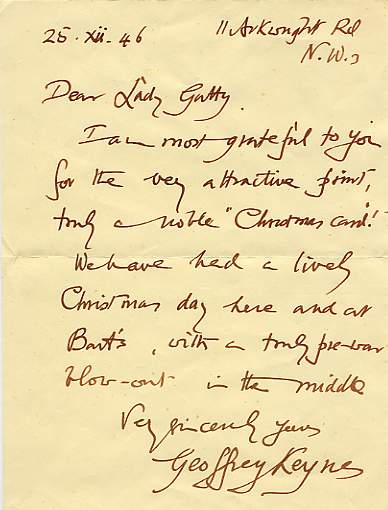 25. xii. 46
11 Arkwright Rd
N.W.3
Dear Lady Gatty.
I am most grateful to you
for the very attractive print,
truly a noble "Christmas card".!
We have had a lively
Christmas day here and at
Bart's, with a truly pre-war
blow-out in the middle
Very sincerely yours
Geoffrey Keynes